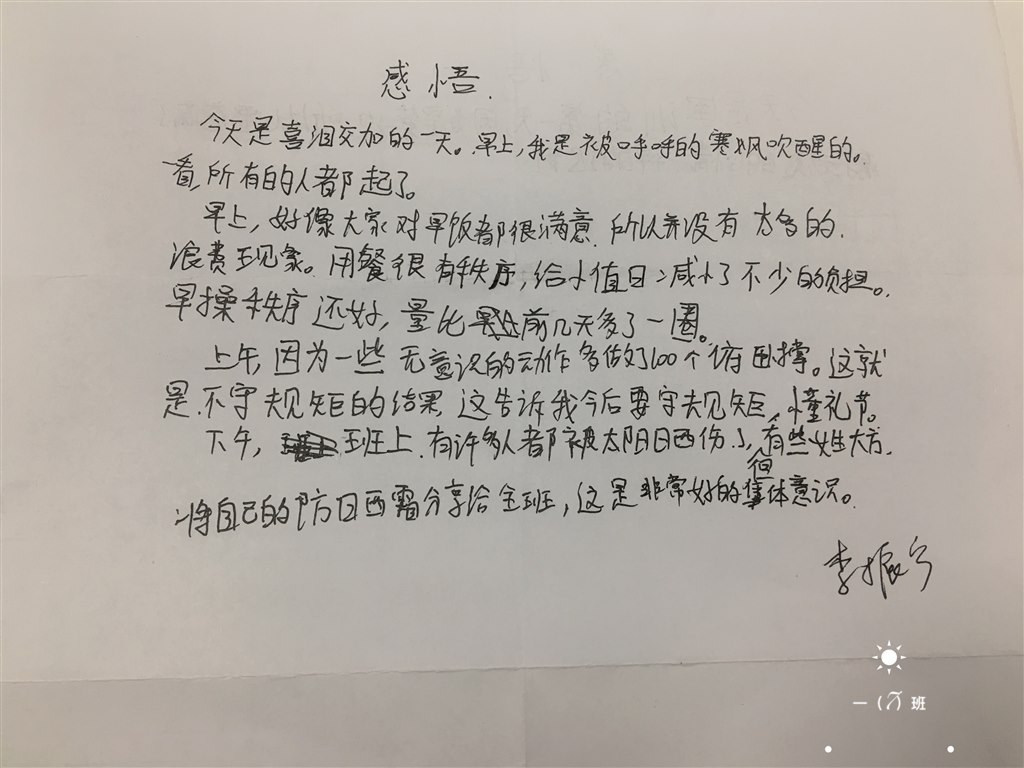 感悟.
今天是喜泪交加的一天。早上,我是被呼呼的寒风吹醒的。
看,所有的人都起了。
早上,好像大家对早饭都很满意.所以并没有太多的.
浪费现象。用餐很有秩序,给小值日:减小了不少的负担。
早操秩序还好,量比前几天多了一圈。
上午,因为一些无意识的动作多做了100个俯卧撑。这就
是不守规矩的结果,这告诉我今后要守规矩,懂礼节。
下午,班上有许多人都被太阳晒伤了,有些女生大方.
但
将自己的防晒霜分享给全班,这是非常好的集体意识。
李振宁
一(7)班